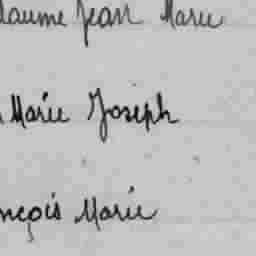 llaume Jean Marie
Marie Joseph
nçois Marie